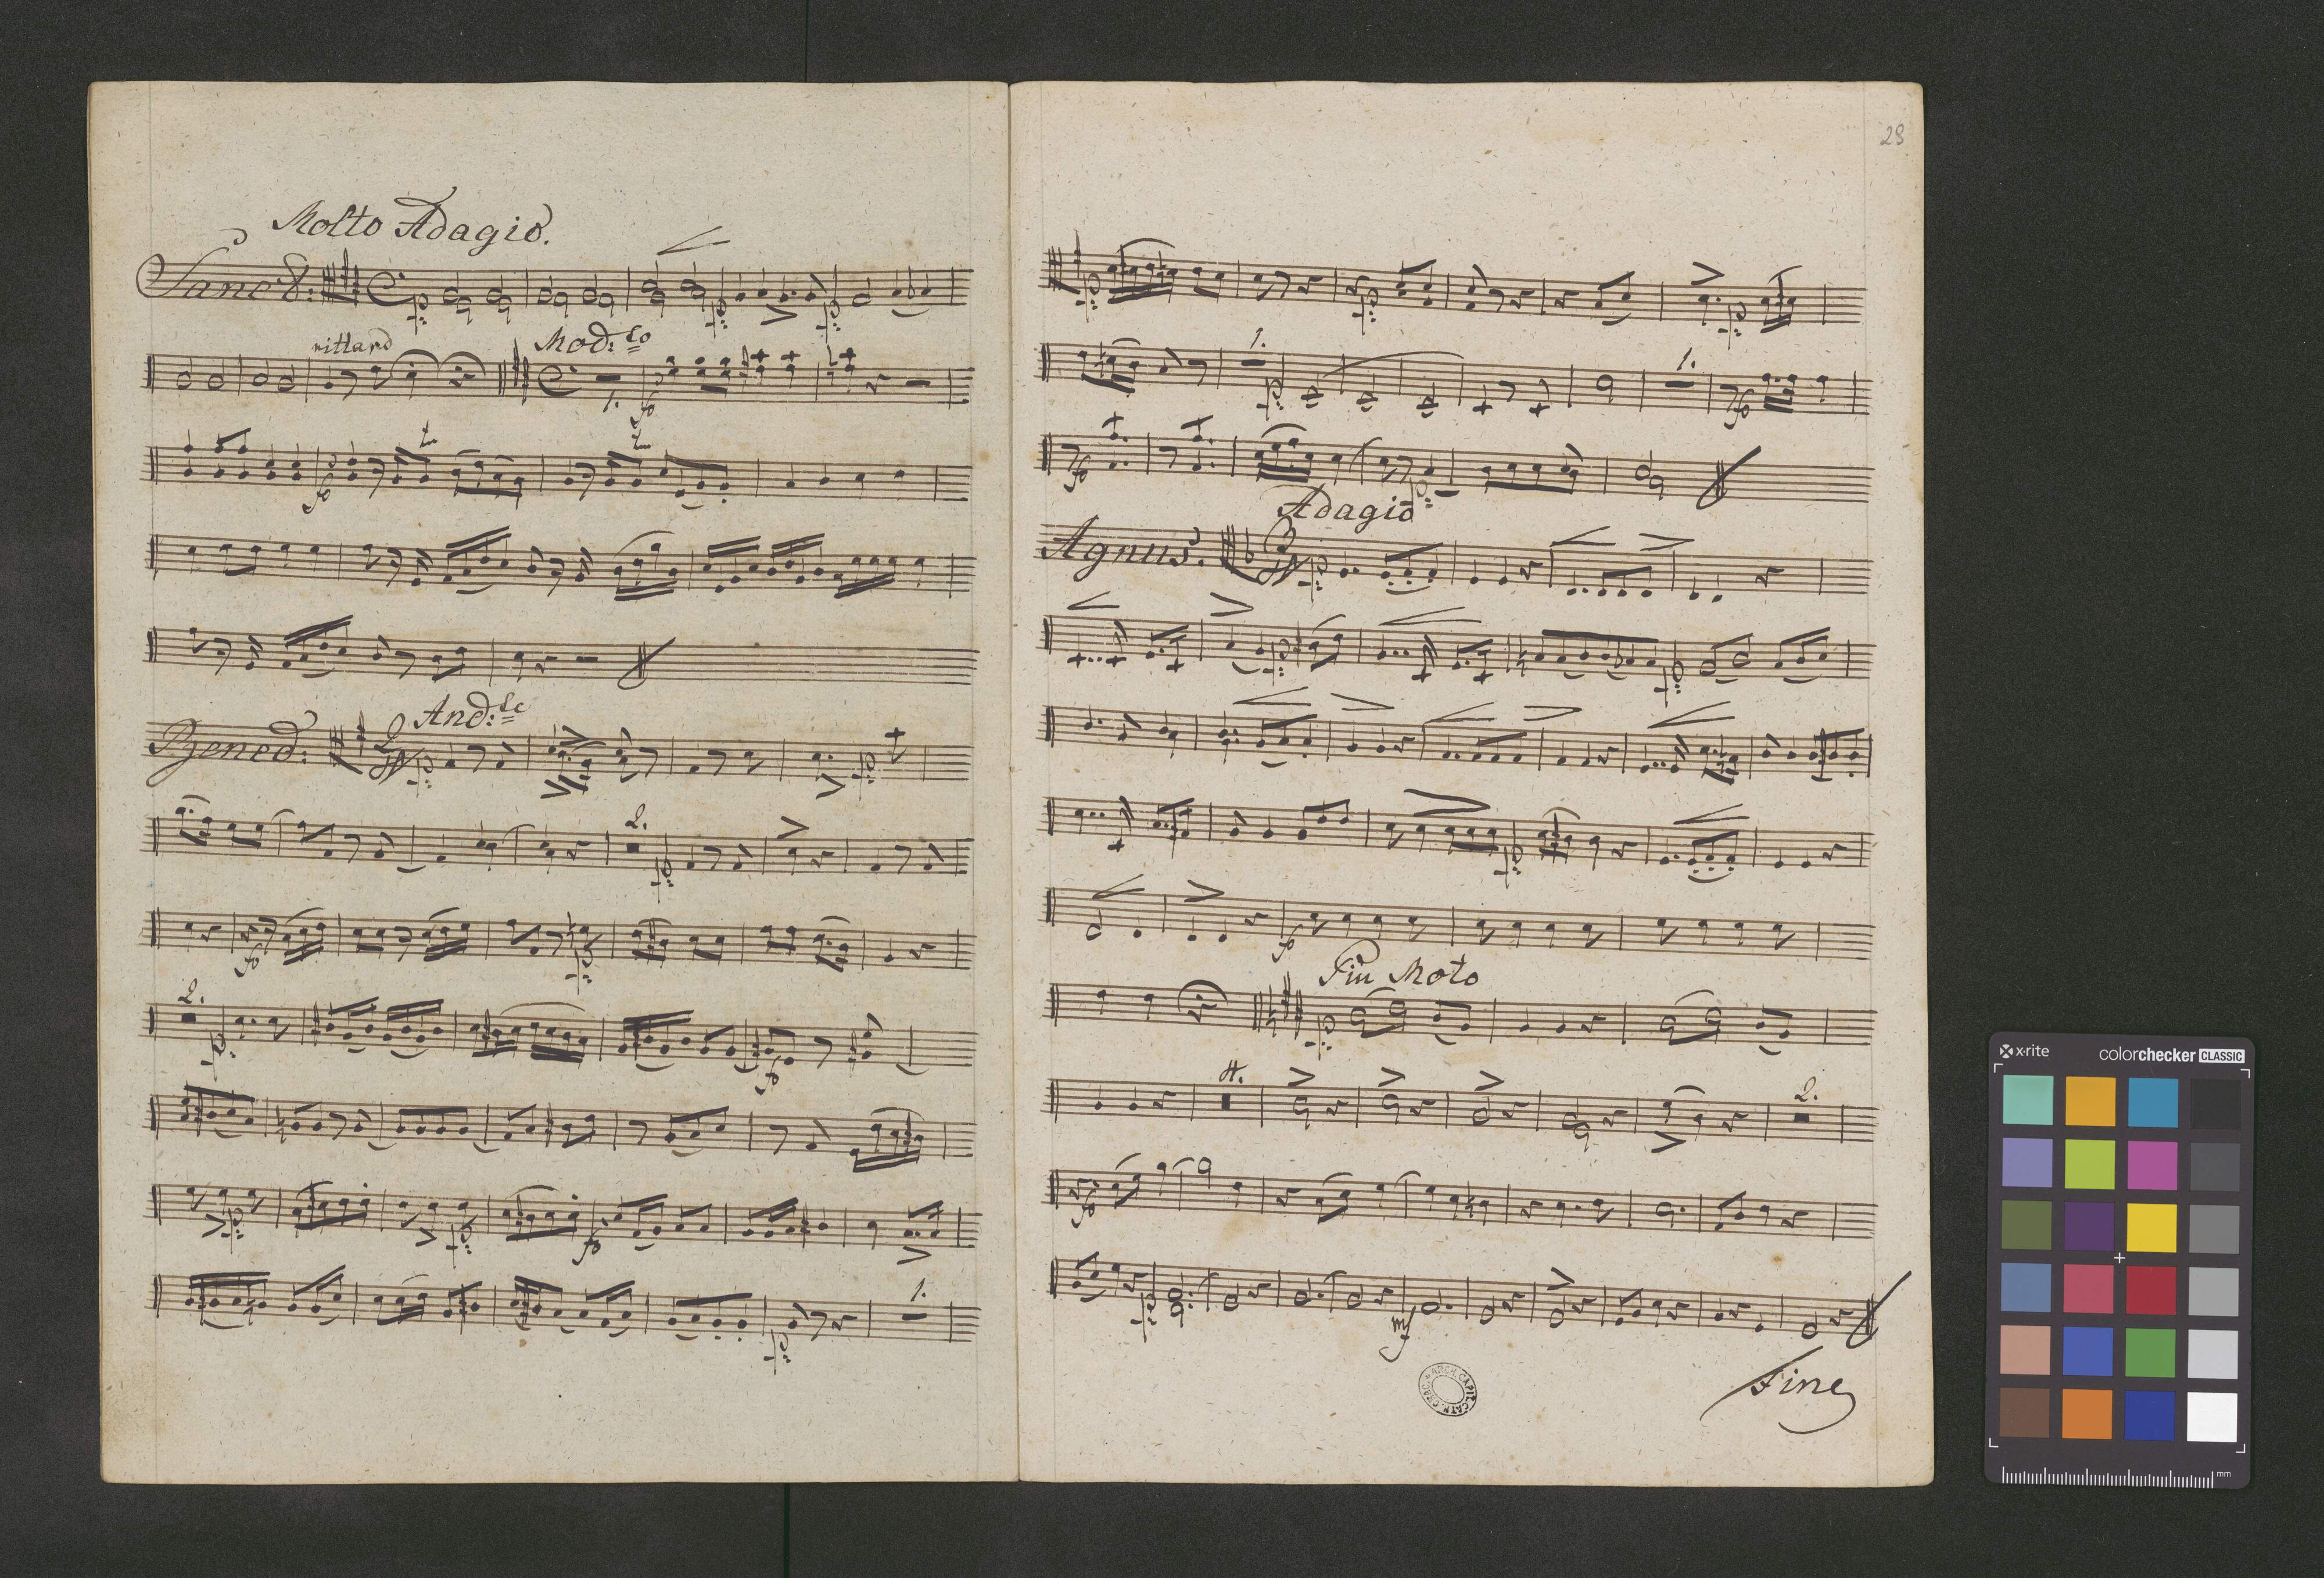 Molto Adagio.
Sanct:
p:
p:
p:
rittard
Mod:to
1.
fo
fo
Bened:
And:te
p:
p:
2.
p:
fo
p:
2.
p:
fo
p:
p:
fo
p:
1.
28
p:
p:
p:
1.
p:
1.
fo
fo
p:
Adagio
Agnus.
p:
p:
p:
p:
fo
Piu Moto
p:
4.
2.
fo
p:
mf
Fine
x·rite
colorchecker CLASSIC
mm